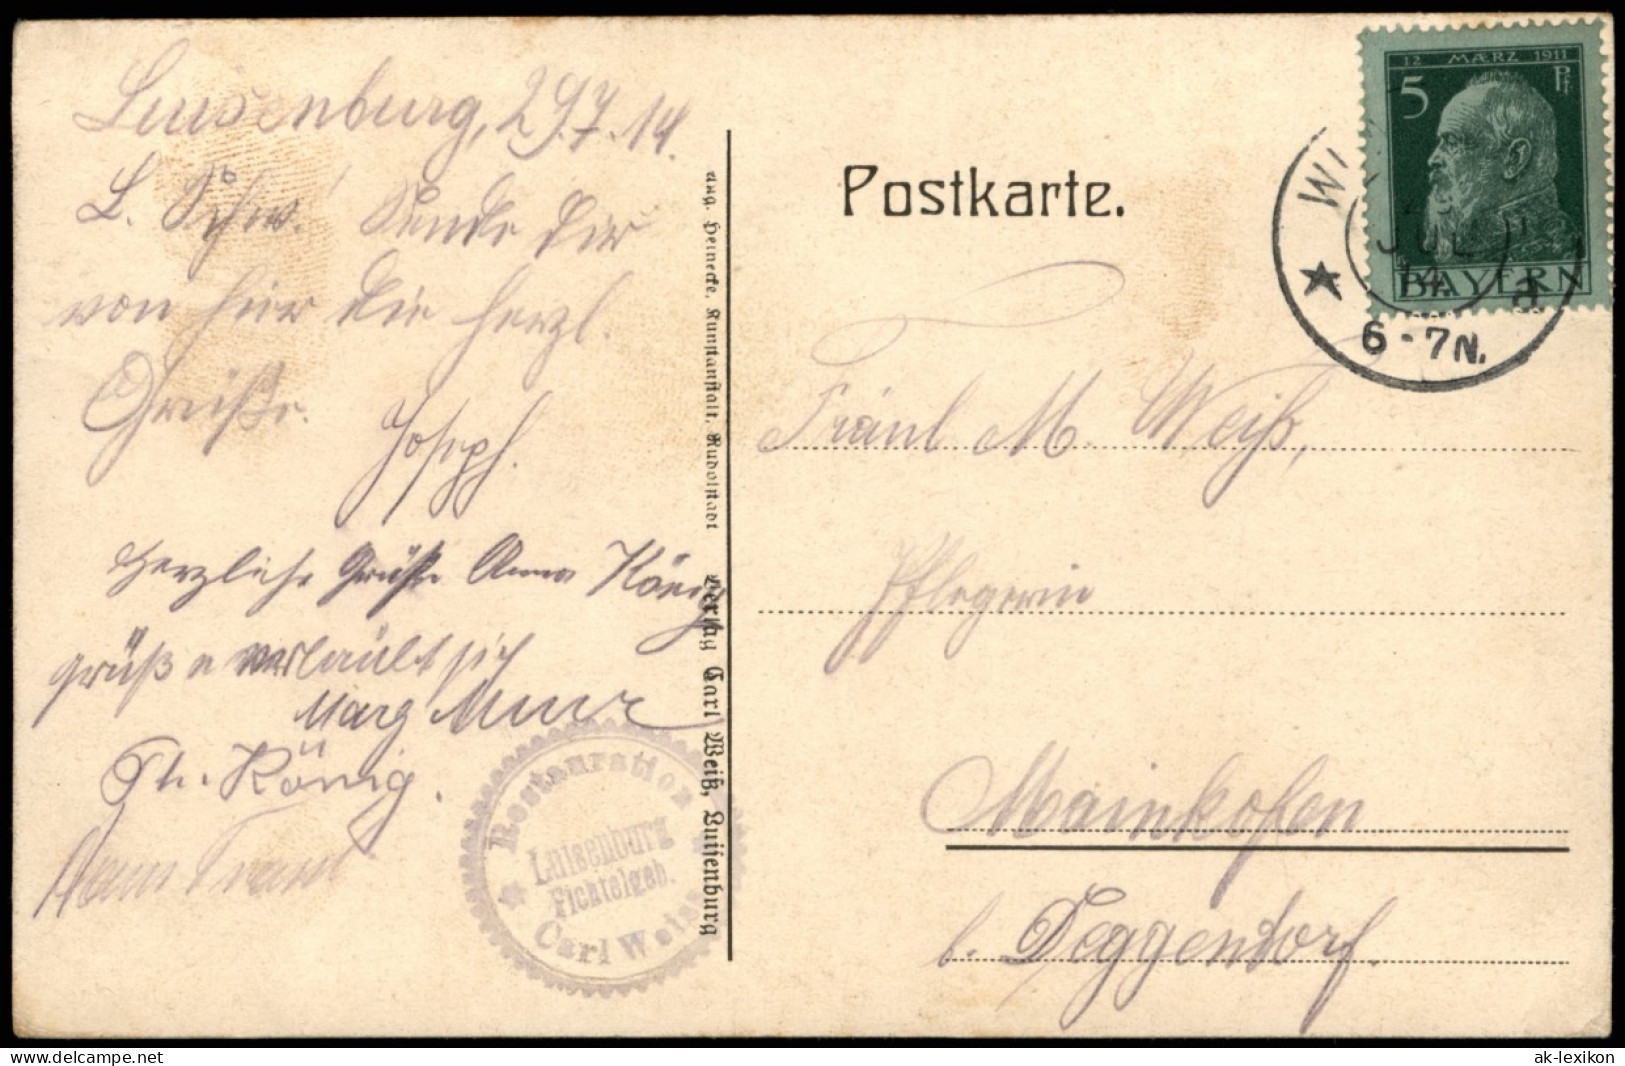 Luisenburg, 29.7.14.
L. Schw.! Sende dir
von hier die herzl.
Grüße.
Joseph.
Herzliche Grüße Anna König
grüßt u
Marg
Th. König.
Restauration
Luisenburg
Fichtelgeb.
Carl Weiss
Aug. Heinecke, Kunstanstalt, Rudolstadt
Verlag Carl Weiß, Luisenburg
Postkarte.
12 MÆRZ 1911
5 Pf
BAYERN
JUL
14
6-7N.
Fräul M. Weiß,
Pflegerin
Mainkofen
b. Deggendorf.
ak-lexikon
www.delcampe.net